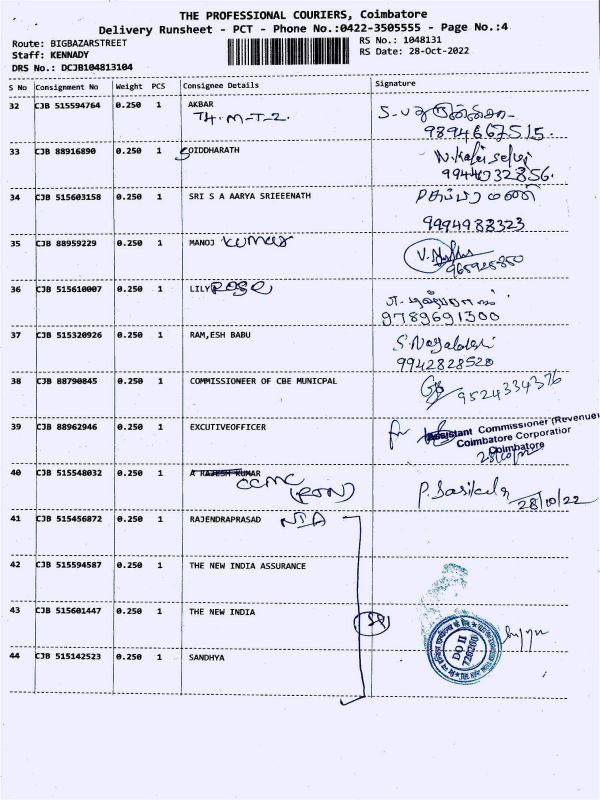 THE PROFESSIONAL COURIERS, Coimbatore
Delivery Runsheet - PCT - Phone No.:0422-3505555 - Page No.:4
Route: BIGBAZARSTREET
RS No.: 1048131
Staff: KENNADY
RS Date: 28-Oct-2022
DRS No.: DCJB104813104
S No Consignment No Weight PCS Consignee Details Signature
32 CJB 515594764 0.250 1 AKBAR
TH.M-T-2.
9894667515.
33 CJB 88916890 0.250 1 OIDDHARATH
9944732856.
34 CJB 515603158 0.250 1 SRI S A AARYA SRIEEENATH
9994988323
35 CJB 88959229 0.250 1 MANOJ Kumar
36 CJB 515610007 0.250 1 LILY ROSE
9789691300
37 CJB 515320926 0.250 1 RAM,ESH BABU
9942828520
38 CJB 88790845 0.250 1 COMMISSIONEER OF CBE MUNICPAL
9524334376
39 CJB 88962946 0.250 1 EXCUTIVEOFFICER
for Assistant Commissioner (Revenue
Coimbatore Corporation
Coimbatore
40 CJB 515548032 0.250 1 A RAJESH KUMAR
CCMC
P. Sasikala
28/10/22
41 CJB 515456872 0.250 1 RAJENDRAPRASAD NIA
42 CJB 515594587 0.250 1 THE NEW INDIA ASSURANCE
43 CJB 515601447 0.250 1 THE NEW INDIA
DO II
720200
44 CJB 515142523 0.250 1 SANDHYA